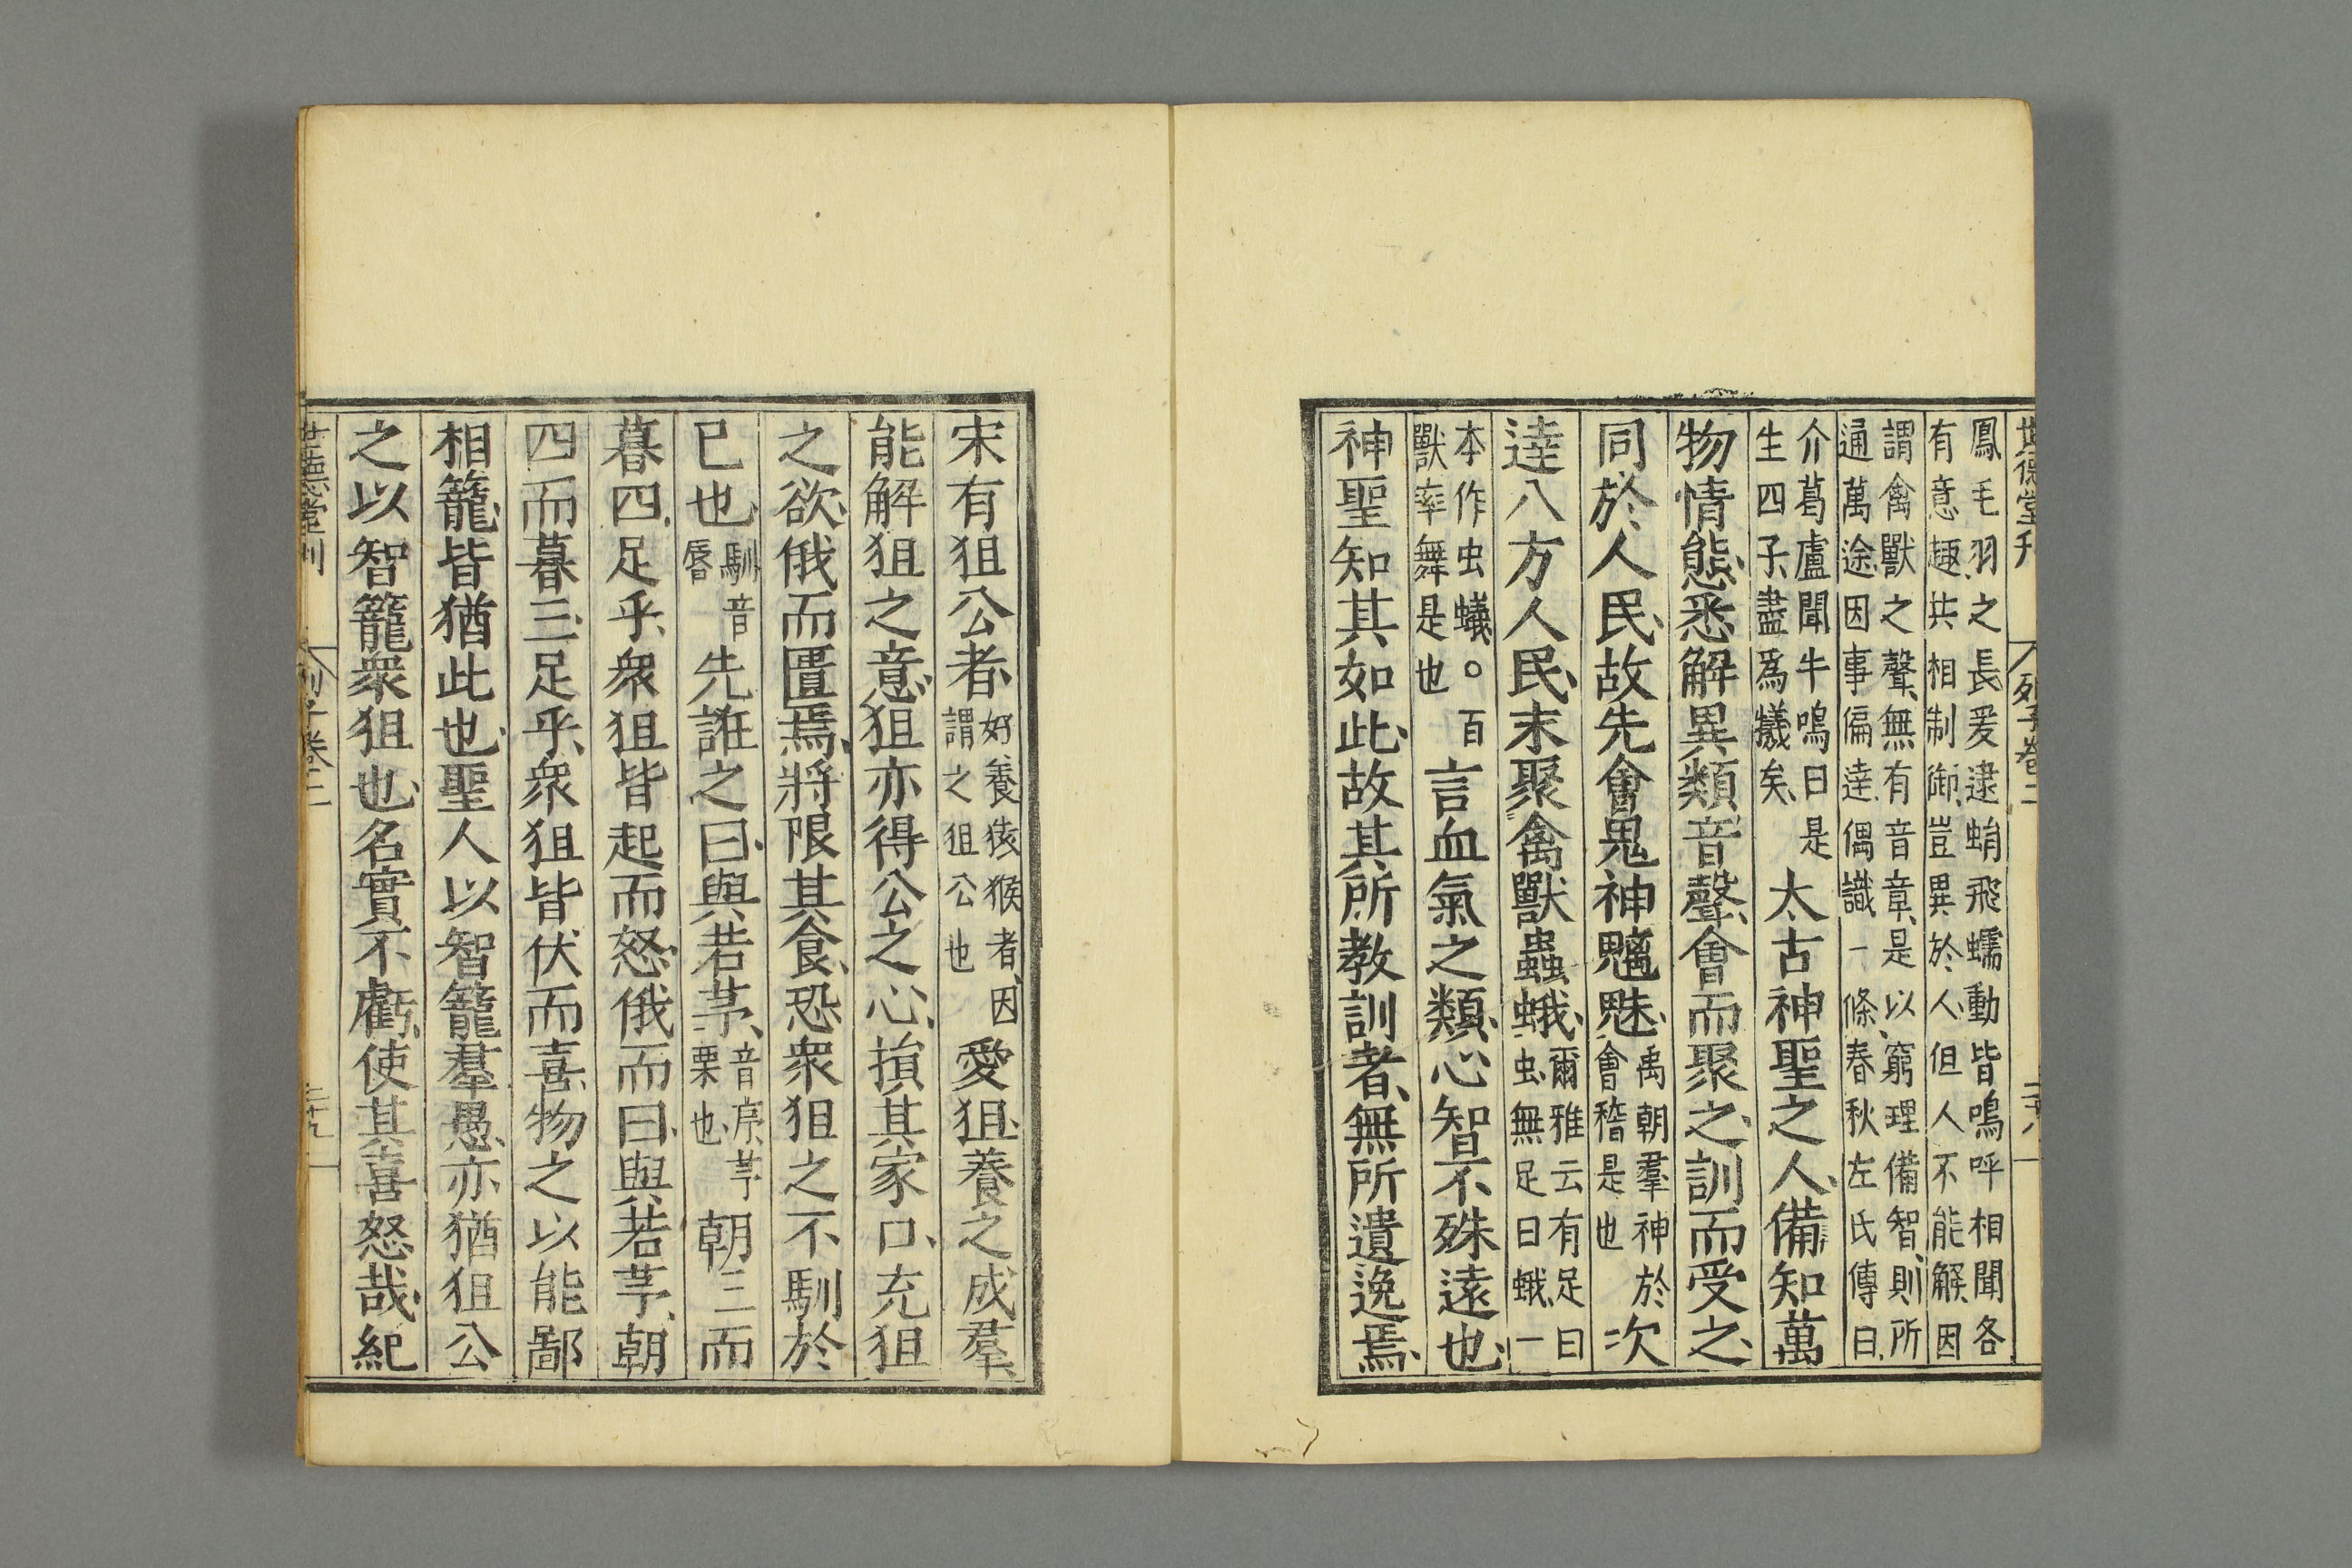 世德堂刊 列子卷二 二十八
鳳毛羽之長爰逮蛸飛蠕動皆鳴呼相聞各
有意趣共相制御豈異於人但人不能解因
謂禽獸之聲無有音章是以窮理備智則所
通萬途因事偏達偶識一條春秋左氏傳曰
介葛盧聞牛鳴曰是
生四子盡爲犧矣
太古神聖之人備知萬
物情態悉解異類音聲會而聚之訓而受之
同於人民故先會鬼神魑魅
禹朝羣神於
會稽是也
次
達八方人民末聚禽獸蟲蛾
爾雅云有足曰
虫無足曰蛾一
本作虫蟻○百
獸率舞是也
言血氣之類心智不殊遠也
神聖知其如此故其所教訓者無所遺逸焉
宋有狙公者
好養猿猴者因
謂之狙公也
愛狙養之成羣
能解狙之意狙亦得公之心損其家口充狙
之欲俄而匱焉將限其食恐衆狙之不馴於
已也
馴音
唇
先誑之曰與若芧
音序芧
栗也
朝三而
暮四足乎衆狙皆起而怒俄而曰與若芧朝
四而暮三足乎衆狙皆伏而喜物之以能鄙
相籠皆猶此也聖人以智籠羣愚亦猶狙公
之以智籠衆狙也名實不虧使其喜怒哉紀
世德堂刊 列子卷二 二十九